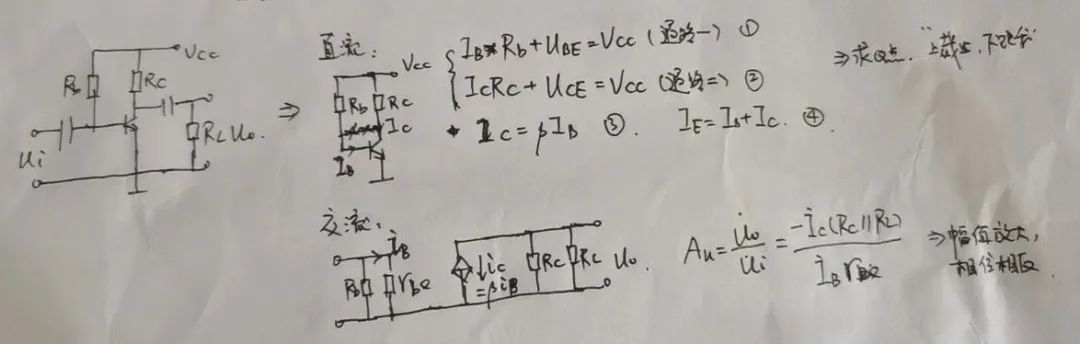 Vcc
Rb
Rc
RL Uo.
Ui
⇒
直流:
Vcc
Rb
Rc
Ic
IB
IB Rb + UBE = Vcc (回路一) ①
IcRc + UCE = Vcc (回路二) ②
Ic = βIB ③. IE = IB + Ic. ④
⇒求Q点. "上截止,下饱和"
交流:
iB
Rb
rbe
↓ic
=βiB
Rc
RL
Uo.
Au = Uo/Ui = -ic(Rc//RL)/iB rbe
⇒幅值放大,
相位相反